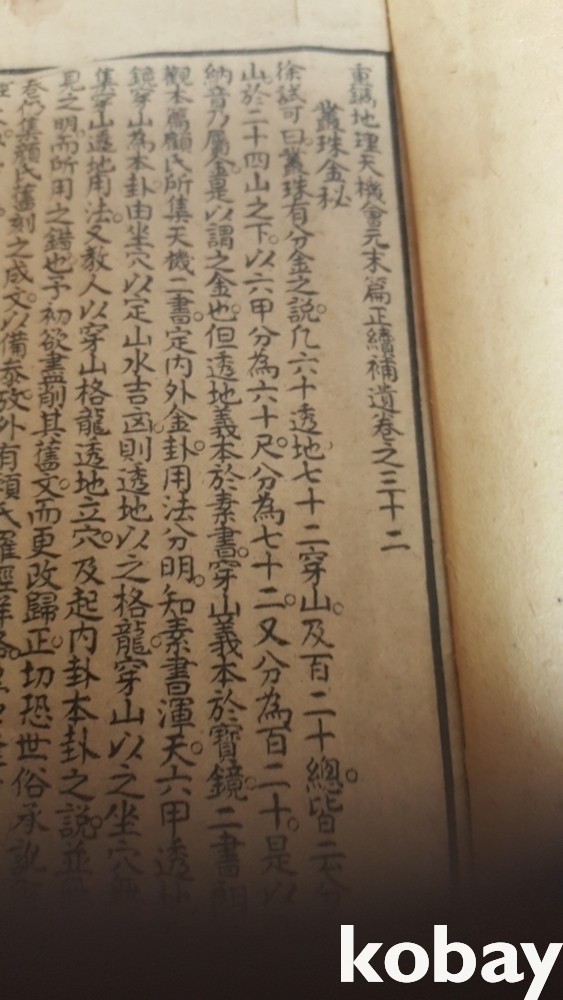 重鐫地理天機會元末篇正續補遺卷之三十二
叢珠金秘
徐試可曰叢珠有分金之說凡六十透地七十二穿山及百二十總皆二
山於二十四山之下以六甲分為六十尺分為七十二又分為百二十是以
納音乃屬金是以謂之金也但透地義本於素書穿山義本於寶鏡二書
觀本屬顧氏所集天機二書定內外金卦用法分明知素書渾天六甲透地
鏡穿山為本卦由坐穴以定山水吉凶則透地以之格龍穿山以之坐穴
集穿山透地用法又教人以穿山格龍透地立穴及起內卦本卦之說並
見之明而所用之錯也予初欲盡削其舊文而更改歸正切恐世俗承訛
卷仍集顏氏舊刻之成文以備叅攷外有顧氏羅經
kobay